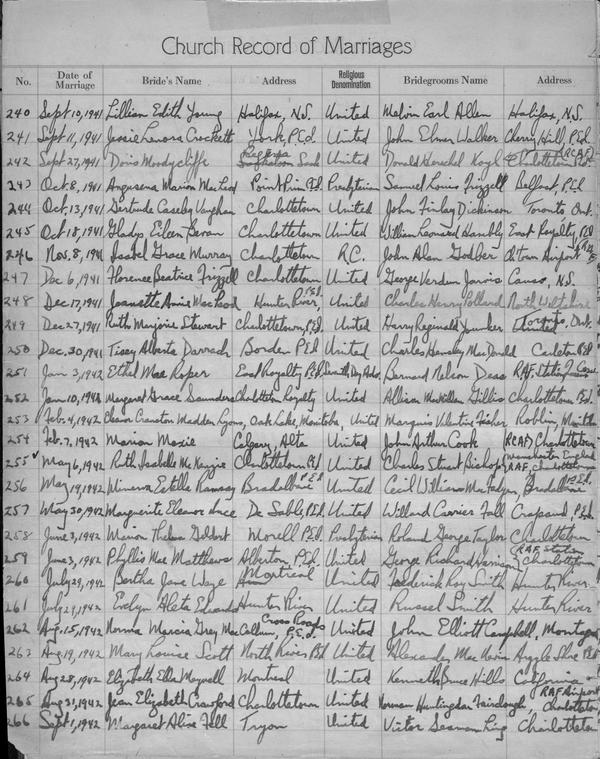 Church Record of Marriages
No. Date of Marriage Bride's Name Address Religious Denomination Bridegrooms Name Address
240 Sept 10, 1941 Lillian Edith Young Halifax, N.S. United Melvin Earl Allen Halifax, N.S.
241 Sept 11, 1941 Jessie Lenora Crockett York, P.E.I. United John Elmer Walker Cherry Hill, P.E.I.
242 Sept 27, 1941 Doris Moodycliffe Regina Sask United Donald Herschel Kogl R.C.A.F.
243 Oct. 8, 1941 Angusena Marion MacLeod Point Prim P.E.I. Presbyterian Samuel Louis Frizzell Belfast, P.E.I
244 Oct. 13, 1941 Gertrude Caseby Vaughan Charlottetown United John Finlay Dickinson Toronto, Ont.
245 Oct 18, 1941 Gladys Eileen Charlottetown United William Leonard Hambly East Royalty, P.E.I
246 Nov. 8, 1941 Isabel Grace Murray Charlottetown R.C. John Alan Godber Ch'town Airport
247 Dec 6, 1941 Florence Beatrice Frizzell Charlottetown United George Verdun Jarvis Canso, N.S.
248 Dec 17, 1941 Jeannette Annie MacLeod Hunter River, P.E.I. United Charles Henry Pollard North Wiltshire
249 Dec 27, 1941 Ruth Marjorie Stewart Charlottetown, P.E.I. United Harry Reginald Junker Toronto, Ont.
250 Dec. 30, 1941 Tissy Alberta Darrach Borden P.E.I United Charles Hensley MacDonald Carleton P.E.I
251 Jan 3, 1942 Ethel Mae Roper East Royalty P.E.I. Seventh Day Advent Bernard Nelson Deas R.A.F. Station
252 Jan 10, 1942 Margaret Grace Saunders Charlotten Royalty United Allison MacMillan Gillis Charlottetown P.E.I.
253 Feb. 4, 1942 Eleanor Cranston Madden Lyons, Oak Lake, Manitoba, United Marquis Valentine Fisher Roblin, Manitoba
254 Feb. 7, 1942 Marion Moxie Calgary, Alta United John Arthur Cook R.C.A.F., Charlottetown
255 May 6, 1942 Ruth Isabelle McKenzie Charlottetown P.E.I United Charles Stuart Bishop Manchester England R.A.F. Charlottetown
256 May 19, 1942 Minerva Estella Ramsay Bradalbane P.E.I United Cecil William MacFadyen Bradalbane P.E.I.
257 May 30, 1942 Marguerite Eleanor De Sable, P.E.I. United Willard Carrier Fall Crapaud, P.E.I.
258 June 3, 1942 Marion Thelma Morell P.E.I. Presbyterian Roland George Taylor Charlottetown
259 June 3, 1942 Phyllis Mae Matthews Alberton, P.E.I. United George Richard Harrison R.A.F. Station Charlottetown
260 July 28, 1942 Bertha Jane Waye Montreal United Frederick Ray Smith Hunter River
261 July 29, 1942 Evelyn Aleta Edwards Hunter River United Russel Smith Hunter River
262 Aug. 15, 1942 Norma Marcia Gray MacCallum, Cross Roads P.E.I. United John Elliott Campbell, Montague
263 Aug 19, 1942 Mary Louise Scott North River P.E.I United Alexander MacKevin Argyle Shore P.E.I
264 Aug 28, 1942 Elizabeth Ella Maynell Montreal United Kenneth Bruce Hills California
265 Aug 31, 1942 Jean Elizabeth Crawford Charlottetown United Norman Huntingdon Fairclough, R.A.F. Airport Charlottetown
266 Sept 1, 1942 Margaret Alice Fall Tryon United Victor Seaman King Charlottetown